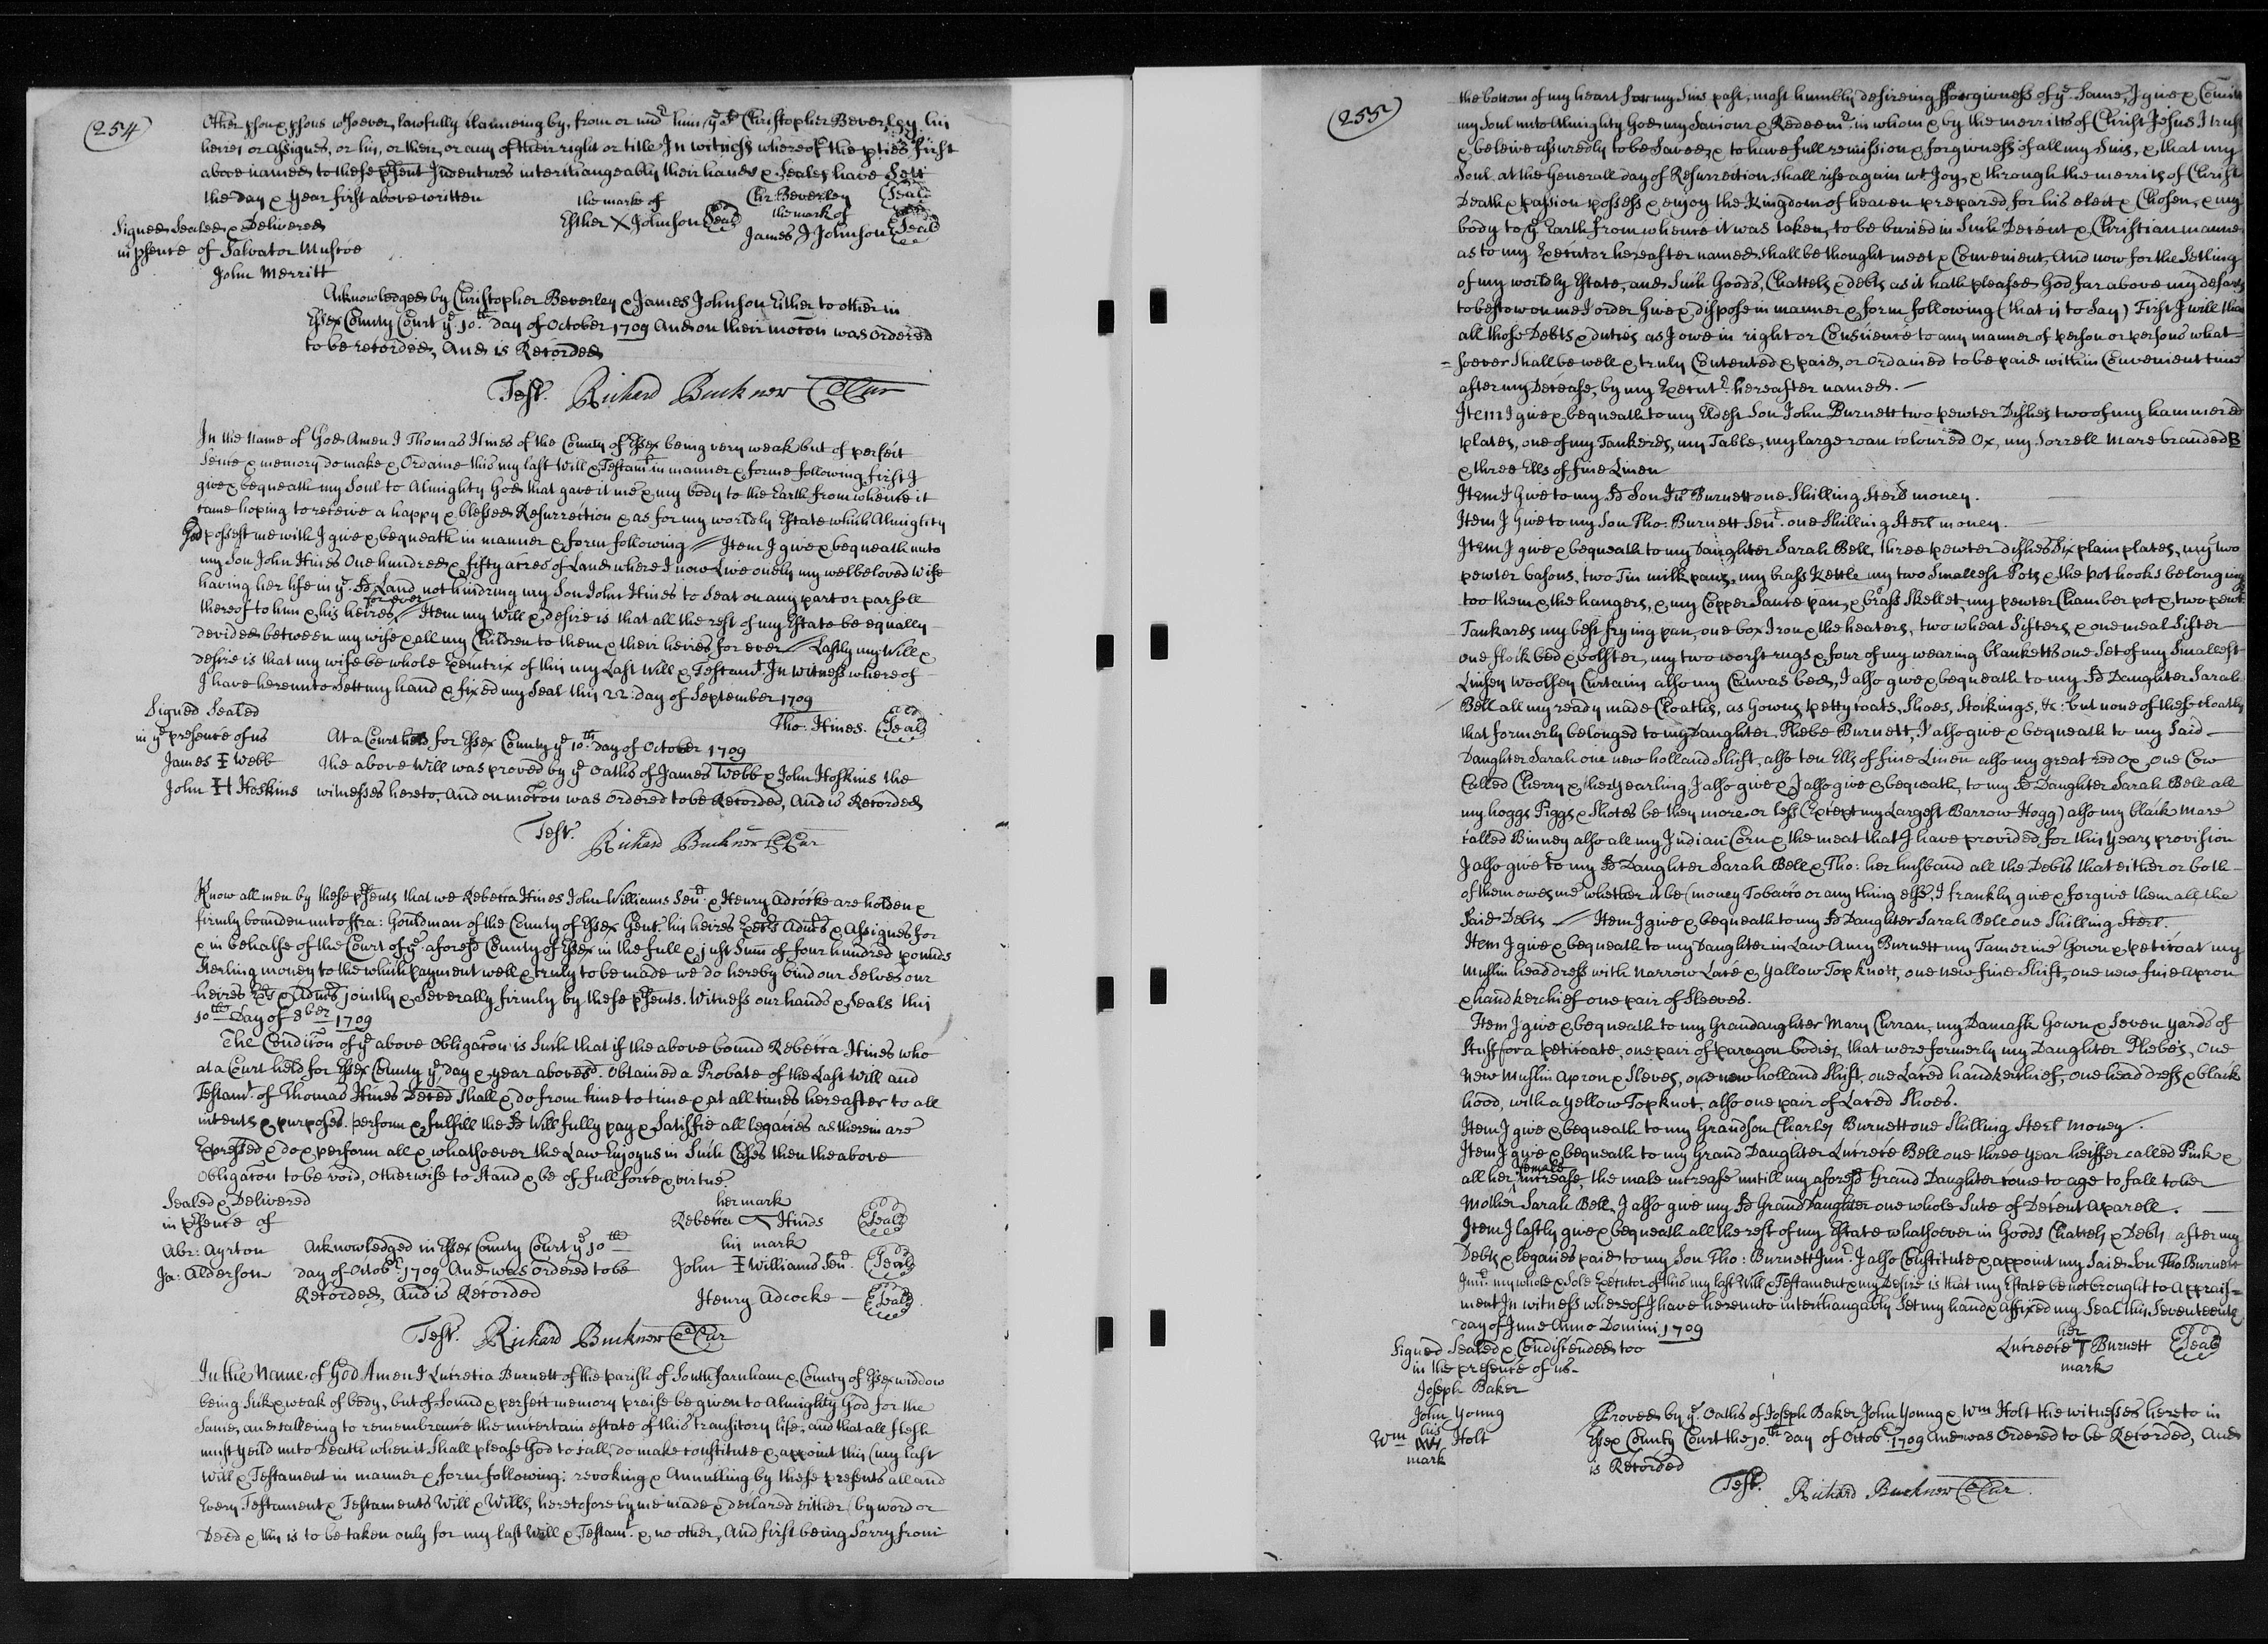 254
Other psons psons wsoever, lawfully claimeing by, from or undr him ye sd Christopher Beverley his
heires or assignes, or his, or their, or any of their right or title In witness whereof the pties first
above named to these psent Indentures interchangeably their hands & Seales have Sett
the day & year first above written
the marke of
Esther X Johnson Seald
Chr: Beverley Seald
the mark of
James J Johnson Seald
Signed Sealed & Delivered
in psence of Salvator Muscoe
John Merritt
Acknowledged by Christopher Beverley & James Johnson Either to other in
Essex County Court ye 10th day of October 1709 And on their moton was ordered
to be recorded, And is Recorded
Test. Richard Buckner Cl Cur
In the Name of God Amen I Thomas Hines of the County of Essex being very weak but of perfect
Sence & memory do make & Ordaine this my last Will & Testamt in manner & forme following, first I
give & bequeath my Soul to Almighty God that gave it me & my body to the Earth from whence it
came hoping to receive a happy & blessed Resurrection & as for my worldly Estate which Almighty
God possest me with I give & bequeath in manner & form following // Item I give & bequeath unto
my Son John Hines One hundred & fifty acres of Land where I now Live onely my welbeloved Wife
having her life in ye sd Land not hindring my Son John Hines to Seat on any part or parsell
thereof to him & his heires for ever // Item my Will & desire is that all the rest of my Estate be equally
devided between my wife & all my Children to them & their heires for ever // Lastly my Will &
desire is that my wife be whole Executrix of this my Last Will & Testamt In Witness whereof
I have hereunto Sett my hand & fixed my Seal this 22: day of September 1709
Tho: Hines. Seald
Signed Sealed
in ye presence of us
James I Webb
John H Hoskins
At a Court held for Essex County ye 10th day of October 1709
the above Will was proved by ye Oaths of James Webb & John Hoskins the
witnesses hereto, And on moton was Ordered to be Recorded, And is Recorded
Test. Richard Buckner Cl Cur
Know all men by these psents that we Rebecca Hines John Williams Senr & Henry Adcocke are holden &
firmly bounden unto ffra: Gouldman of the County of Essex Gent. his heires Exers Admrs & Assignes for
& in behalfe of the Court of ye aforesd County of Essex in the full & just Sum of four hundred pounds
Sterling money to the which payment well & truly to be made we do hereby bind our Selves our
heires Exrs & Admrs joyntly & Severally firmly by these psents. Witness our hands & Seals this
10th Day of 8ber 1709
The Condicon of ye above Obligacon is Such that if the above bound Rebecca Hines who
at a Court held for Essex County ye day & year abovesd. Obtained a Probate of the Last Will and
Testamt. of Thomas Hines Deced Shall & do from time to time & at all times hereafter to all
intents & purposes. perform & fulfill the sd Will fully pay & Satisfie all legacies as therein are
Expressed & do & perform all & whatsoever the Law Enjoyns in Such Cases then the above
Obligacon to be void, otherwise to Stand & be of full force & virtue.
Sealed & Delivered
in psence of
Abr: Ayrton
Ja: Alderson
her mark
Rebecca Hinds Seald
his mark
John I Williams Senr. Seald
Henry Adcocke Seald
Acknowledged in Essex County Court ye 10th
day of Octobr. 1709 And was ordered to be
Recorded, And is Recorded
Test. Richard Buckner Cl Cur
In the Name of God Amen I Lucretia Burnett of the parish of Southfarnham & County of Essex widdow
being Sick & weak of body, but of Sound & perfect memory praise be given to Almighty God for the
Same, and calleing to remembrance the uncertain estate of this transitory life, and that all flesh
must yeild unto Death when it Shall please God to call, do make constitute & appoint this (my last
Will & Testament in manner & form following: revoking & Annulling by these presents all and
Every Testament & Testaments Will & Wills, heretofore by me made & declared either by word or
Deed & this is to be taken only for my last Will & Testamt. & no other, And first being Sorry from
255
the bottom of my heart for my Sins past, most humbly desireing fforgivness of ye Same, I give & Comitt
my Soul unto Almighty God my Saviour & Redeemr, in whom & by the merritts of Christ Jesus I trust
& beleive assuredly to be Saved, & to have full remission & forgivness of all my Sins, & that my
Soul at the Generall day of Resurrection Shall rise again wt Joy, & through the merrits of Christ
Death & passion possess & enjoy the Kingdom of heaven prepared for his elect & Chosen, & my
body to ye Earth from whence it was taken, to be buried in Such Decent & Christian manner
as to my Executor hereafter named shall be thought meet & Convenient, And now for the Setling
of my worldly Estate, and Such Goods, Chattels & debts as it hath pleased God far above my deserts
to bestow on me I order Give & dispose in manner & form following (that is to Say) First I will that
all those Debts & duties as I owe in right or Conscience to any manner of person or persons what-
=soever Shall be well & truly Contented & paid, or ordained to be paid within Convenient time
after my Decease, by my Executr. hereafter named.
Item I give & bequeath to my Eldest Son John Burnett two pewter Dishes two of my hammered
plates, one of my Tankerds, my Table, my large roan coloured Ox, my Sorrell Mare branded B
& three Ells of fine Linen
Item I Give to my sd Son Jno Burnett one Shilling Sterl money.
Item I Give to my Son Tho: Burnett Senr. one Shilling Sterl money.
Item I give & bequeath to my Daughter Sarah Bell, three pewter dishes Six plain plates, my two
pewter basons, two Tin milk pans, my brass Kettle my two Smallest Pots & the pot hooks belonging
too them & the hangers, & my Copper Sauce pan, & brass Skellet, my pewter Chamber pot & two pewtr
Tankards my best frying pan, one box Iron & the heaters, two wheat Sifters, & one meal Sifter
one flock bed & bolster, my two worst rugs & four of my wearing blanketts one Set of my Smallest
Linsey Woolsey Curtains also my Canvas bed, I also give & bequeath to my sd Daughter Sarah
Bell all my ready made Cloaths, as Gowns, pettycoats, Shoes, Stockings, &c: but none of these cloaths
that formerly belonged to my Daughter Phebe Burnett, I also give & bequeath to my Said
Daughter Sarah one new holland Shift, also ten Ells of fine Linen also my great red Ox, one Cow
Called Cherry & her yearling, I also give & I also give & bequeath, to my sd Daughter Sarah Bell all
my hoggs Piggs & Shotes be they more or less (Except my Largest Barrow Hogg) also my black Mare
called Binney also all my Indian Corn & the meat that I have provided for this Years provision
I also give to my sd Daughter Sarah Bell & Tho: her husband all the Debts that either or both
of them owes me whether it be (money Tobacco or any thing else, I frankly give & forgive them all the
Said Debts // Item I give & bequeath to my sd Daughter Sarah Bell one Shilling Sterl.
Item I give & bequeath to my Daughter in Law Amy Burnett my Tamerine Gown & peticoat my
Muslin head dress with Narrow Lace & Yallow Top knott, one new fine Shift, one new fine apron
& handkerchief one pair of Sleeves.
Item I give & bequeath to my Grandaughter Mary Curran, my Damask Gown & Seven yards of
Stuff for a peticoate, one pair of paragon bodies, that were formerly my Daughter Phebe's, One
New Muslin Apron & Sleves, one new holland Shift, one Laced handkerchief, one head dress & black
hood, with a Yellow Topknot, also one pair of Laced Shoes.
Item I give & bequeath to my Grandson Charles Burnett one Shilling Sterl Money.
Item I give & bequeath to my Grand Daughter Lucrece Bell one three year heiffer called Pink &
all her female increase, the male increase untill my aforesd Grand Daughter come to age to fall to her
Mother Sarah Bell, I also give my sd Grand Daughter one whole Sute of Decent Aparell.
Item I lastly give & bequeath all the rest of my Estate whatsoever in Goods Chattels & Debts after my
Debts & legacies paid to my Son Tho: Burnett Junr. I also Constitute & appoint my Said Son Tho: Burnett
Junr. my whole & Sole Executor of this my last Will & Testament & my Desire is that my Estate be not brought to Apprais=
ment In witness whereof I have hereunto interchangably Set my hand & affixed my Seal this Seventeenth
day of June Anno Domini 1709
her
Lucreece T Burnett Seald
mark
Signed Sealed & Condiscended too
in the presence of us
Joseph Baker
John Young
his
Wm Holt
mark
Proved by ye Oaths of Joseph Baker John Young & Wm Holt the witnesses hereto in
Essex County Court the 10th day of Octobr 1709 and was Ordered to be Recorded, And
is Recorded
Test. Richard Buckner Cl Cur.